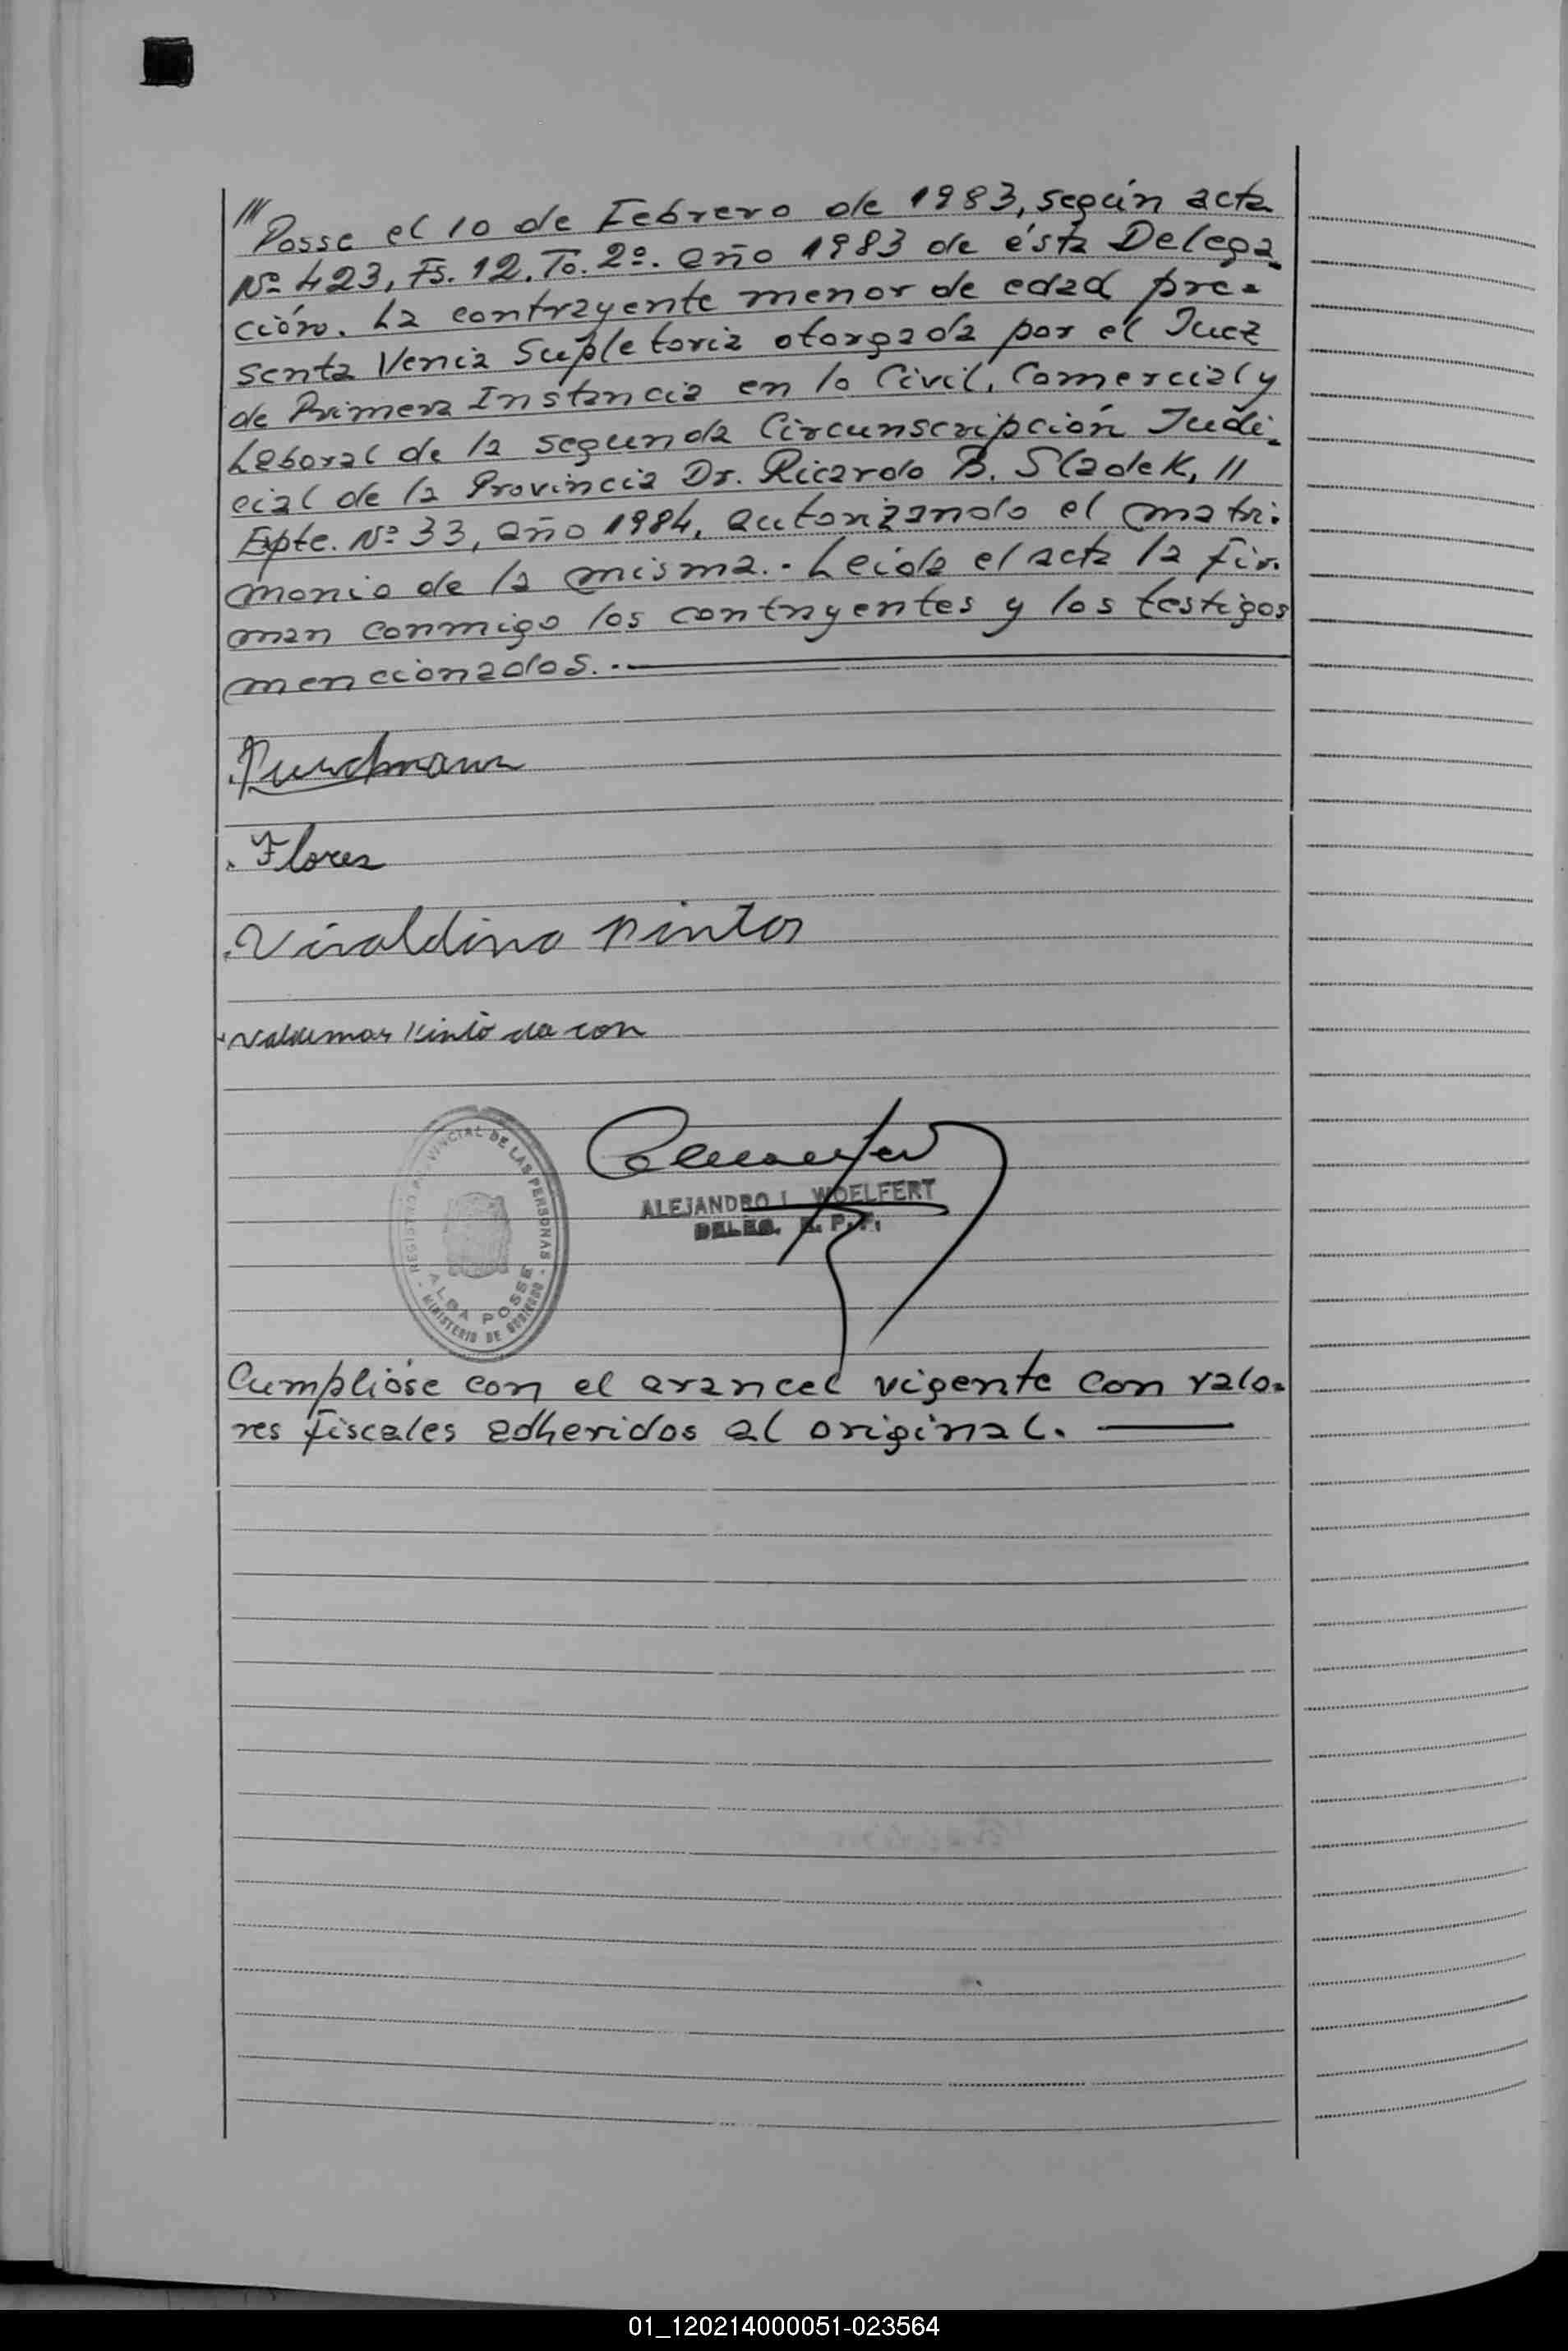 /// Posse el 10 de Febrero de 1983, según acta
Nº 423, Fs. 12. To. 2º. año 1983 de ésta Delega-
ción. La contrayente menor de edad pre-
senta Venia Supletoria otorgada por el Juez
de Primera Instancia en lo Civil, Comercial y
Laboral de la segunda Circunscripción Judi-
cial de la Provincia Dr. Ricardo B. Sladek, //
Expte. Nº 33, año 1984, autorizando el matri-
monio de la misma.- Leida el acta la fir-
man conmigo los contryentes y los testigos
mencionados.-
Flores
Viraldino Pintos
Valdemar Pinto da
REGISTRO PROVINCIAL DE LAS PERSONAS
ALBA POSSE
- MINISTERIO DE GOBIERNO -
ALEJANDRO L. WOELFERT
DELEG. R. P. P.
Cumplióse con el arancel vigente con valo-
res fiscales adheridos al original.
01_120214000051-023564